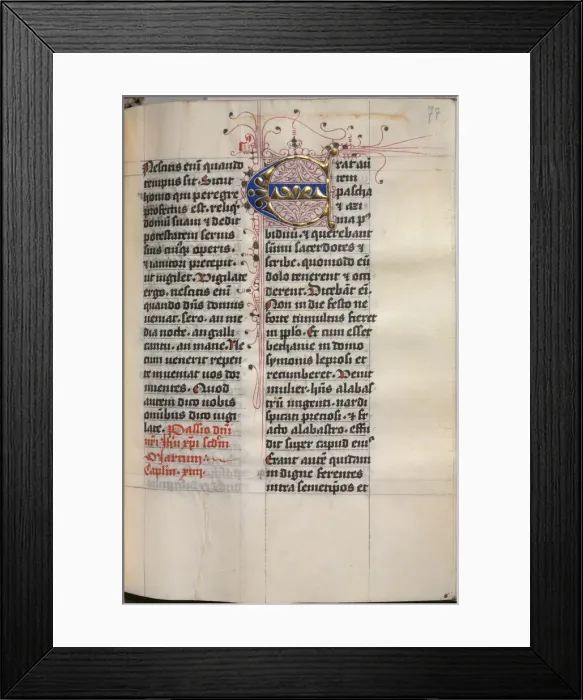 77
Nescitis eni quando
tempus sit. Sicut
homo qui peregre
profectus est. reliq
domu suam & dedit
potestatem servis
suis cuiusq operis.
& ianitori precepit.
ut vigilet. Vigilate
ergo. nescitis eni
quando dns domus
veniat. sero. an me
dia nocte. an galli
cantu. an mane. Ne
cum venerit repen
te inveniat vos dor
mientes. Quod
autem dico vobis
omibus dico vigi
late. Passio dni
nri ihu xpi scdm
Marcum.
Caplm. xiiii.
Erat aut
tem
pascha
& azi
ma p
biduu. & querebant
sumi sacerdotes &
scribe. quomodo eu
dolo tenerent & occi
derent. Dicebat ei.
Non in die festo ne
forte tumultus fieret
in ipso. Et cum esset
bethanie in domo
symonis leprosi et
recumberet. Venit
mulier. hns alabas
tru ungenti. nardi
spicati preciosi. & fr
acto alabastro. effu
dit super caput eius
Erant aute quidam
indigne ferentes
intra semetipsos et